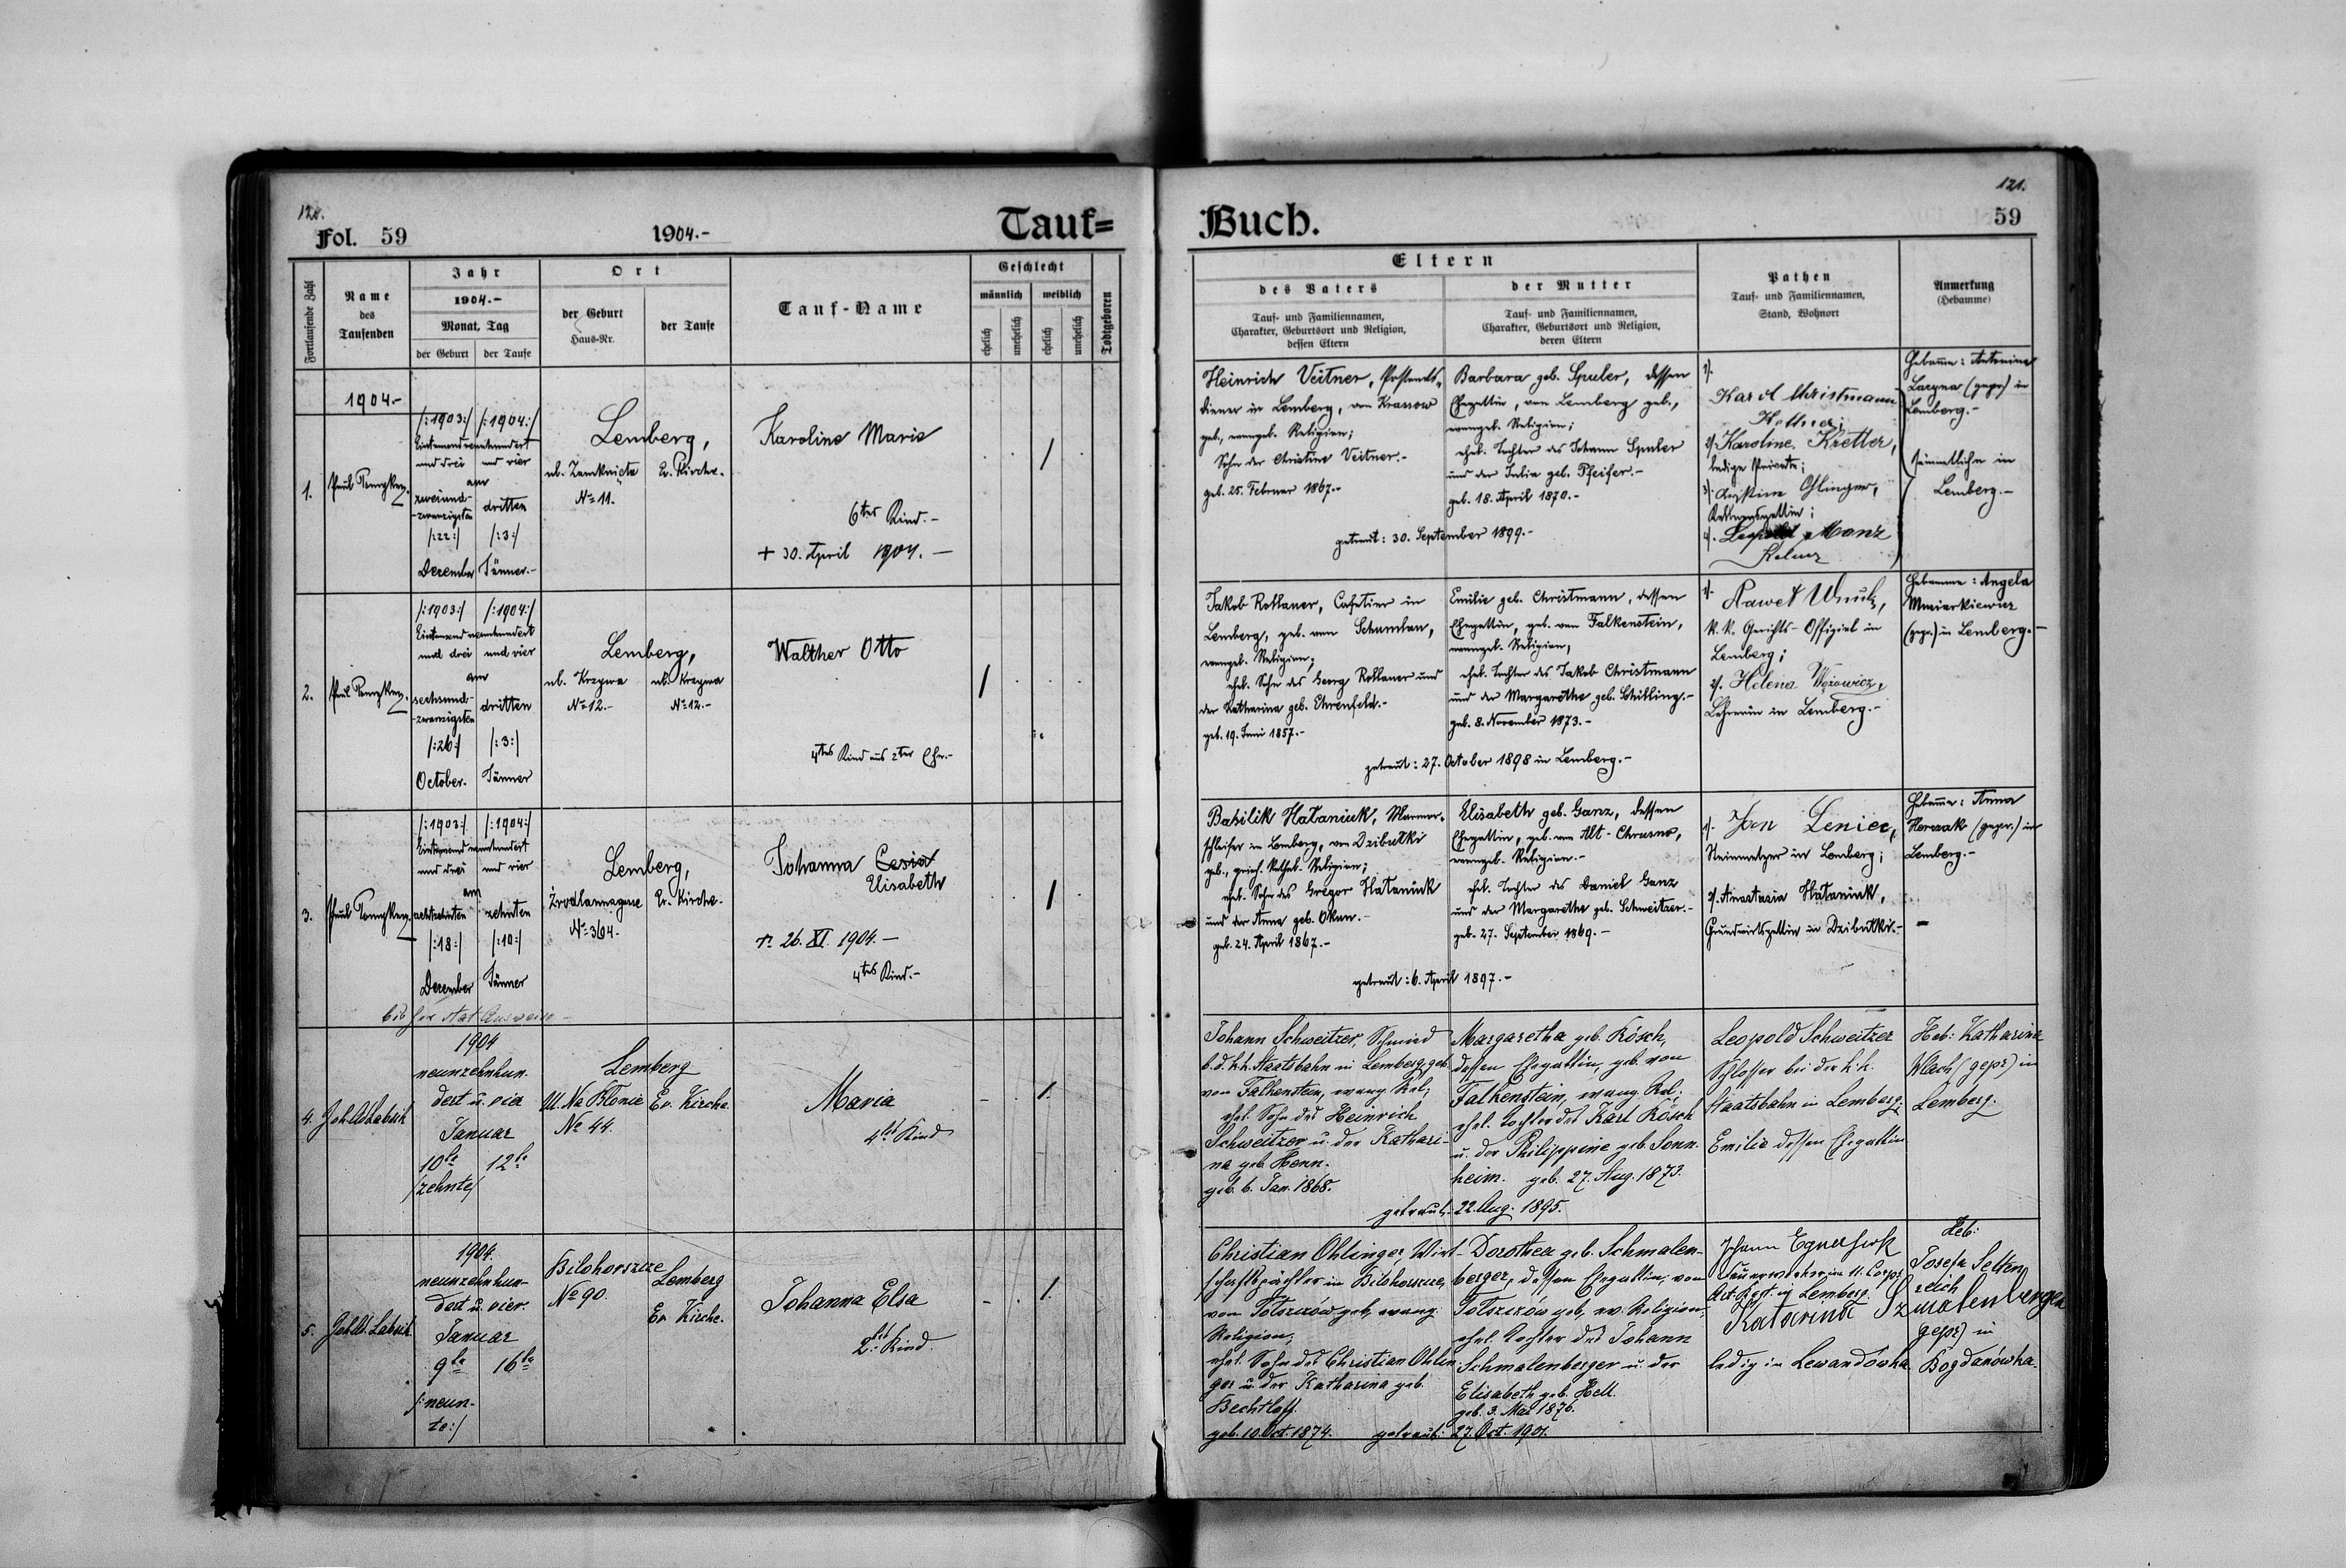 121.
Fol. 59
1904.-
Tauf=
Fortlaufende Zahl
Name
des
Taufenden
Jahr
1904.-
Monat, Tag
der Geburt
der Taufe
Ort
der Geburt
Haus-Nr.
der Taufe
Tauf-Name
Geschlecht
männlich
weiblich
ehelich
unehelich
ehelich
unehelich
Todtgeboren
1904.-
1.
Paul
/:1903:/ /:1904:/
und drei und vier
am
zweiund-
-zwanzigsten
dritten
/:22:/ /:3:/
Dezember Jänner.-
Lemberg,
ul. Zamknięta Ev. Kirche.
No 11.
Karoline Marie
6tes Kind.-
+ 30. April 1904. —
2.
Paul
/:1903:/ /:1904:/
und drei und vier
am
sechsund-
-zwanzigsten
dritten
/:26:/ /:3:/
October. Jänner
Lemberg,
ul. Krzywa ul. Krzywa
No 12.- No 12.-
Walther Otto
4tes Kind aus 2ter Ehe.-
3.
Paul
/:1903:/ /:1904:/
und drei und vier
am
achtzehnten zehnten
/:18:/ /:10:/
Dezember Jänner
Lemberg,
Ev. Kirche.
No 364.
Johanna Cesia
Elisabeth
26. XI. 1904.—
4tes Kind.-
4.
1904
neunzehnhun-
dert u. vier
Januar
10te 12te
/zehnte/
Lemberg
Ul. Na Błonie Ev. Kirche.
No 44.
Maria
4tes Kind
5.
1904.
neunzehnhun-
dert u. vier.
Januar
9te 16te
/:neun-
te:/
Biłohorszcze
No 90.
Lemberg
Ev. Kirche.
Johanna Elsa
2tes Kind.
121.
Buch.
59
Eltern
des Vaters
Tauf- und Familiennamen,
Charakter, Geburtsort und Religion,
dessen Eltern
der Mutter
Tauf- und Familiennamen,
Charakter, Geburtsort und Religion,
deren Eltern
Pathen
Tauf- und Familiennamen,
Stand, Wohnort
Anmerkung
(Hebamme)
Heinrich Veitner, Postamts-
diener in Lemberg, von Krassow
geb., evangel. Religion;
Sohn der Christine Veitner.-
geb. 25. Februar 1867.-
Barbara geb. Spuler, dessen
Ehegattin, von Lemberg geb.,
evangel. Religion;
ehel. Tochter des Johann Spuler
und der Julia geb. Pfeifer.-
geb. 18. April 1870.-
getraut: 30. September 1899.-
1/.
Karol Christmann
2/. Karoline Kretter,
ledige Private;
3/.
4/. Leopold Manz
Kelner
Hebamme: Antonina
Lazyna (gepr.) in
Lemberg.-
sämmtliche in
Lemberg.-
Jakob Rollauer, Cafetier in
Lemberg, geb. von Schumlau,
evangel. Religion;
ehel. Sohn des Georg Rollauer und
der Katharina geb. Ehrenfeld.-
geb. 19. Juni 1857.-
Emilie geb. Christmann, dessen
Ehegattin, geb. von Falkenstein,
evangel. Religion,
ehel. Tochter des Jakob Christmann
und der Margarethe geb. Schilling.-
geb. 8. November 1873.-
getraut: 27. October 1898 in Lemberg.-
1/.
k. k. Gerichts-Offizial in
Lemberg;
2/. Helena Wąsowicz,
Lehrerin in Lemberg.-
Hebamme: Angela
(gepr.) in Lemberg.-
Basilik Hataniuk, Marmor-
schleifer in Lemberg, von Dzibułki
geb., griech. Kathol. Religion;
ehel. Sohn des Gregor Hataniuk
und der Anna geb. Okun.-
geb. 24. April 1867.-
Elisabeth geb. Ganz, dessen
Ehegattin, geb. von Alt-Chrusno,
evangel. Religion.-
ehel. Tochter des Daniel Ganz
und der Margarethe geb. Schweitzer.-
geb. 27. September 1869.-
getraut: 6. April 1897.-
1/. Jan Leniec,
Steinmetzer in Lemberg;
2/. Anastasia Hataniuk,
Grundwirtsgattin in Dzibułki.-
Hebamme: Anna
(gepr.) in
Lemberg.-
Johann Schweitzer, Schmied
b. d. k.k. Staatsbahn in Lemberg, geb.
von Falkenstein, evang. Rel;
ehel. Sohn des Heinrich
Schweitzer u. der Kathari-
na geb. Henn.
geb. 6. Jan. 1868.
Margaretha geb. Kösch,
dessen Ehegattin, geb. von
Falkenstein, evang. Rel;
ehel. Tochter des Karl Kösch
u. der Philippine geb. Sonn-
heim. geb. 27. Aug. 1873.
getraut: 22. Aug. 1895.
Leopold Schweitzer
Schlosser bei der k.k.
Staatsbahn in Lemberg;
Emilie dessen Ehegattin
Heb: Katharina
Wlach (gepr) in
Lemberg.
Christian Ohlinger, Wirt-
schaftspächter in Biłohorszcze,
geb, evang.
Religion,
ehel. Sohn des Christian Ohlin
ger u. der Katharina geb.
Bechtloff.
geb. 10. Oct. 1874.
Dorothea geb. Schmalen-
berger, dessen Ehegattin, von
geb, ev. Religion,
ehel. Tochter des Johann
Schmalenberger u. der
Elisabeth geb. Hell.
geb. 3. Mai 1876.
getraut: 27. Oct. 1901.
Johann
Feuerwerker im 11. Corps
Art. Regt. in Lemberg.
Katarina Szmalenberger
ledig in Lewandówka.
Heb:
Josefa Selten
reich
gepr) in
Bogdanówka.